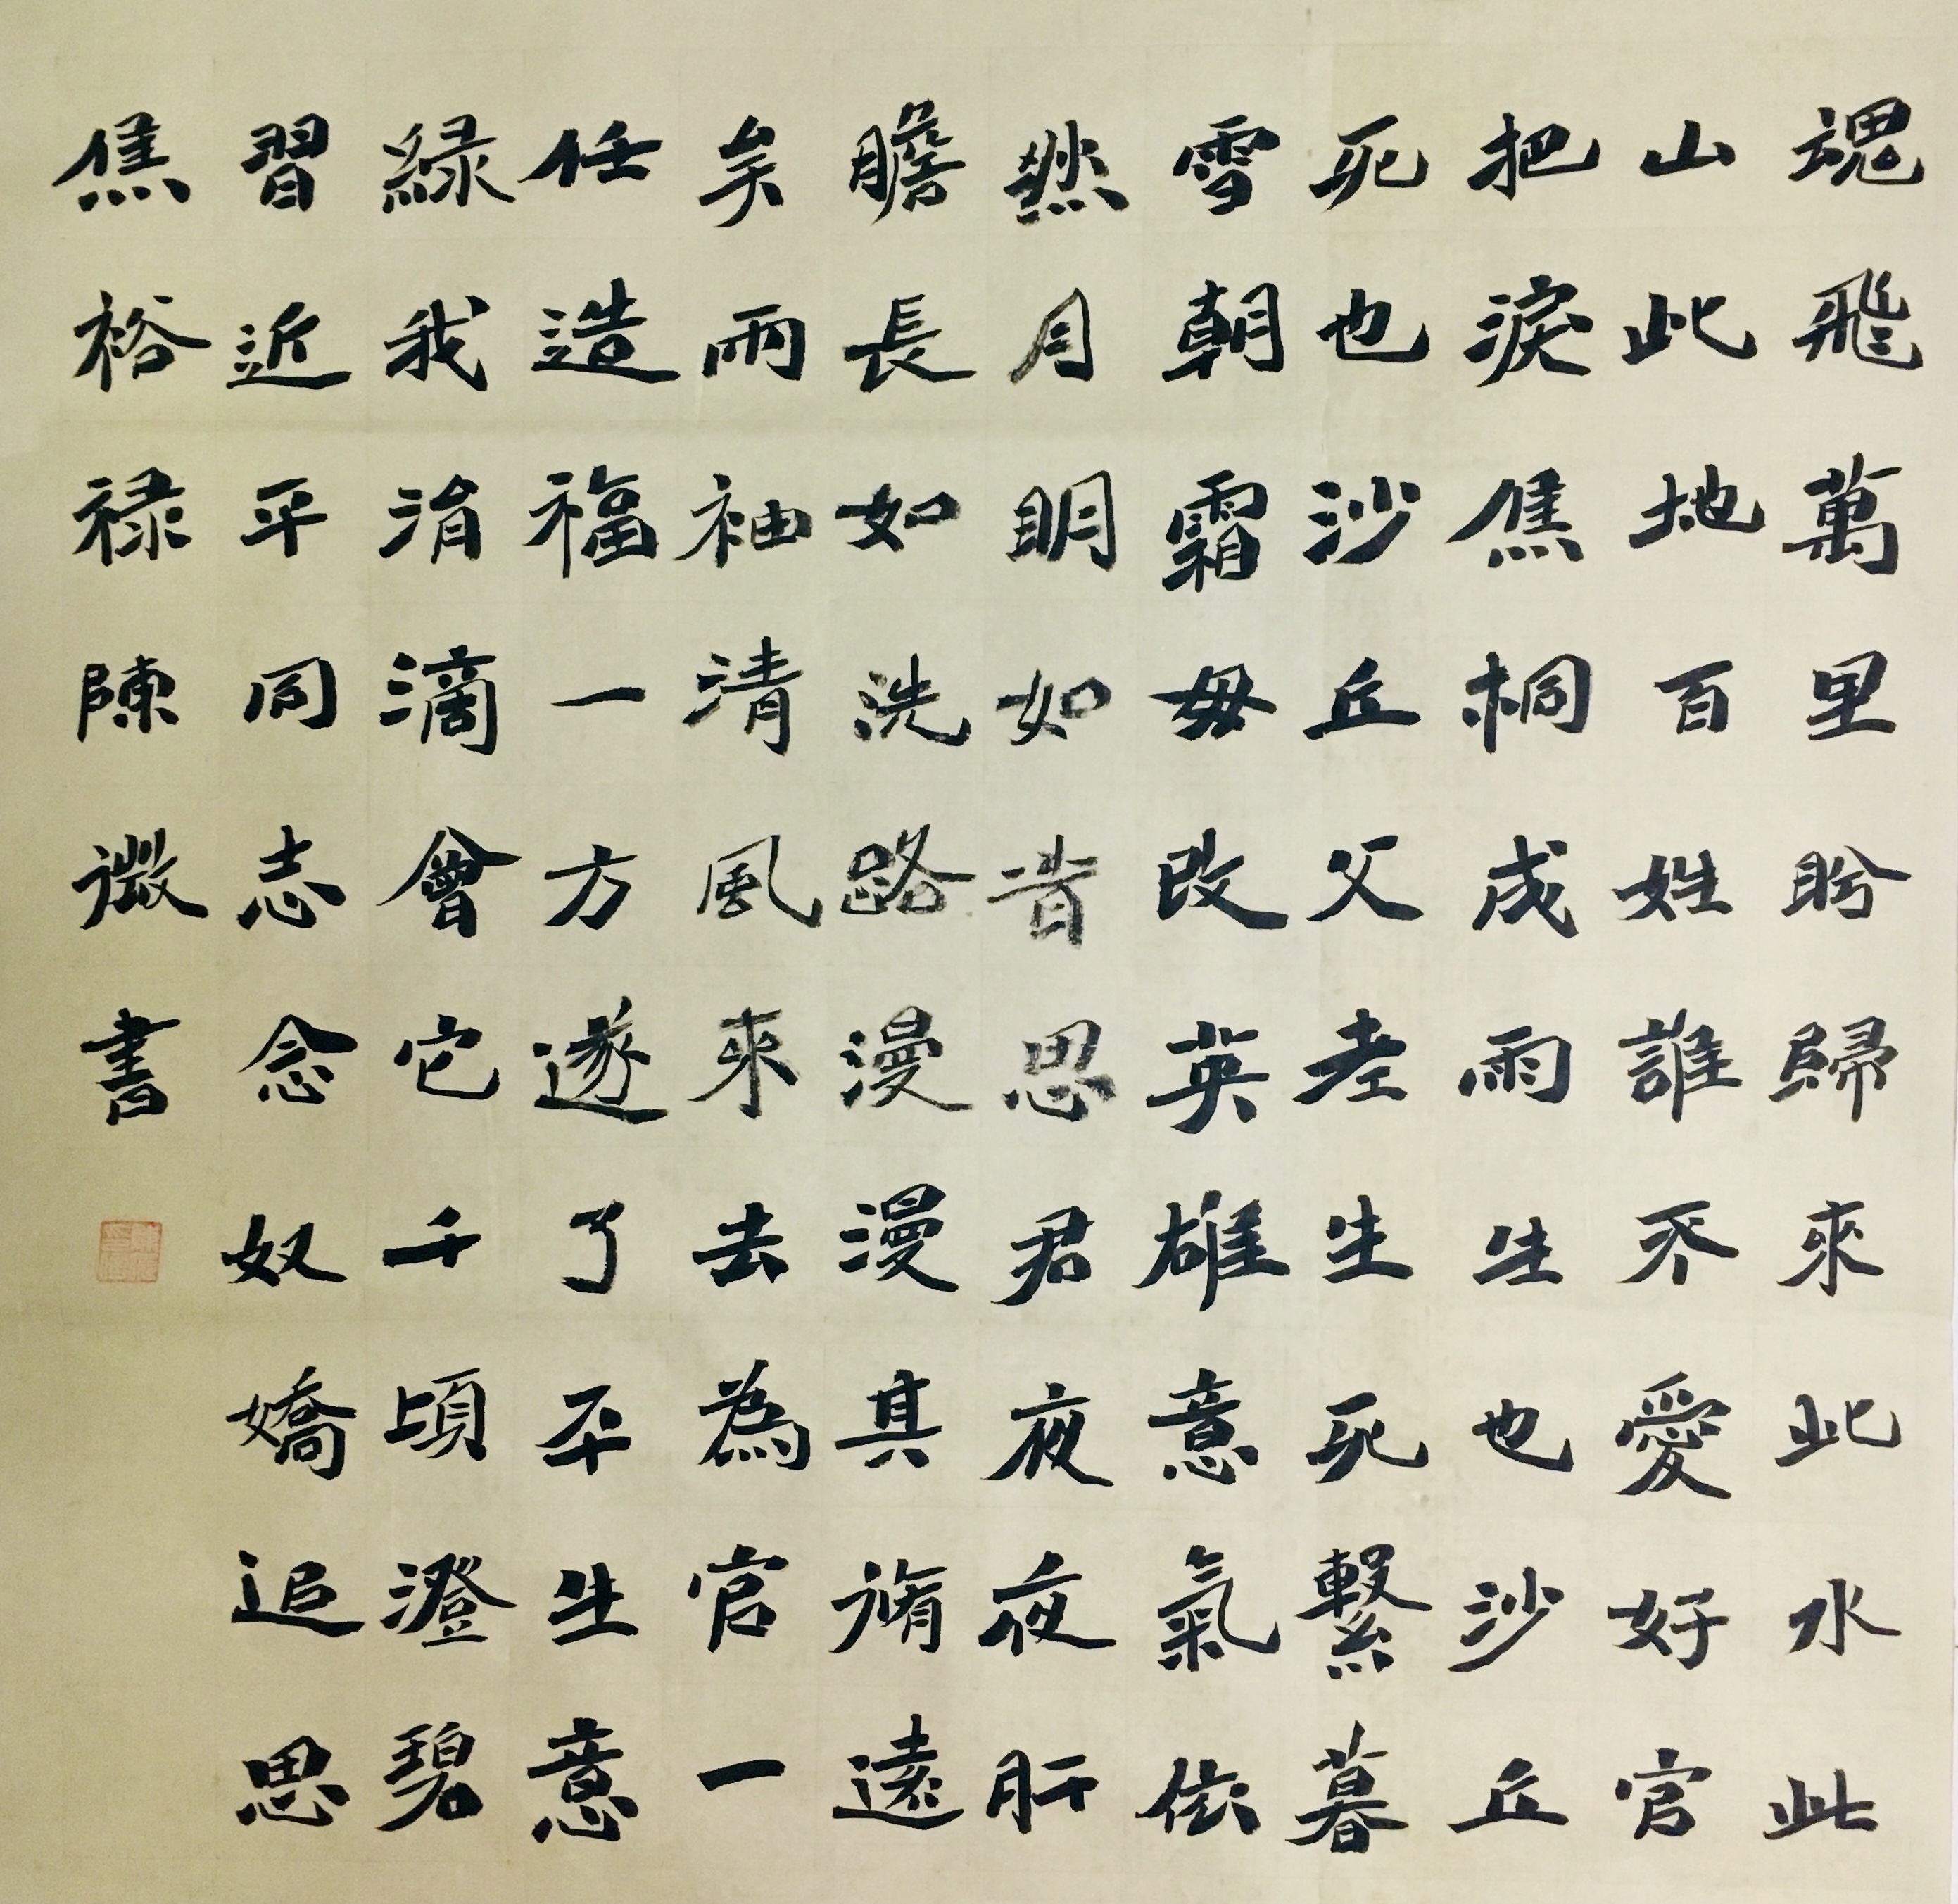 魂飛萬里盼歸來此水此
山此地百姓誰不愛好官
把淚焦桐成雨生也沙丘
死也沙丘父老生死繫暮
雪朝霜毋改英雄意氣依
然月明如昔思君夜夜肝
膽長如洗路漫漫其脩遠
矣兩袖清風來去為官一
任造福一方遂了平生意
綠我涓滴會它千頃澄碧
習近平同志念奴嬌追思
焦裕祿陳微書